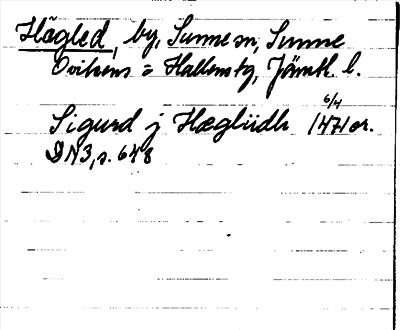 Hägled, by, Sunne sn, Sunne
Ovikens o Hallens tg, Jämtl. l.
Sigurd j Hæglüdh 6/4 1471 or.
DN3, s. 648